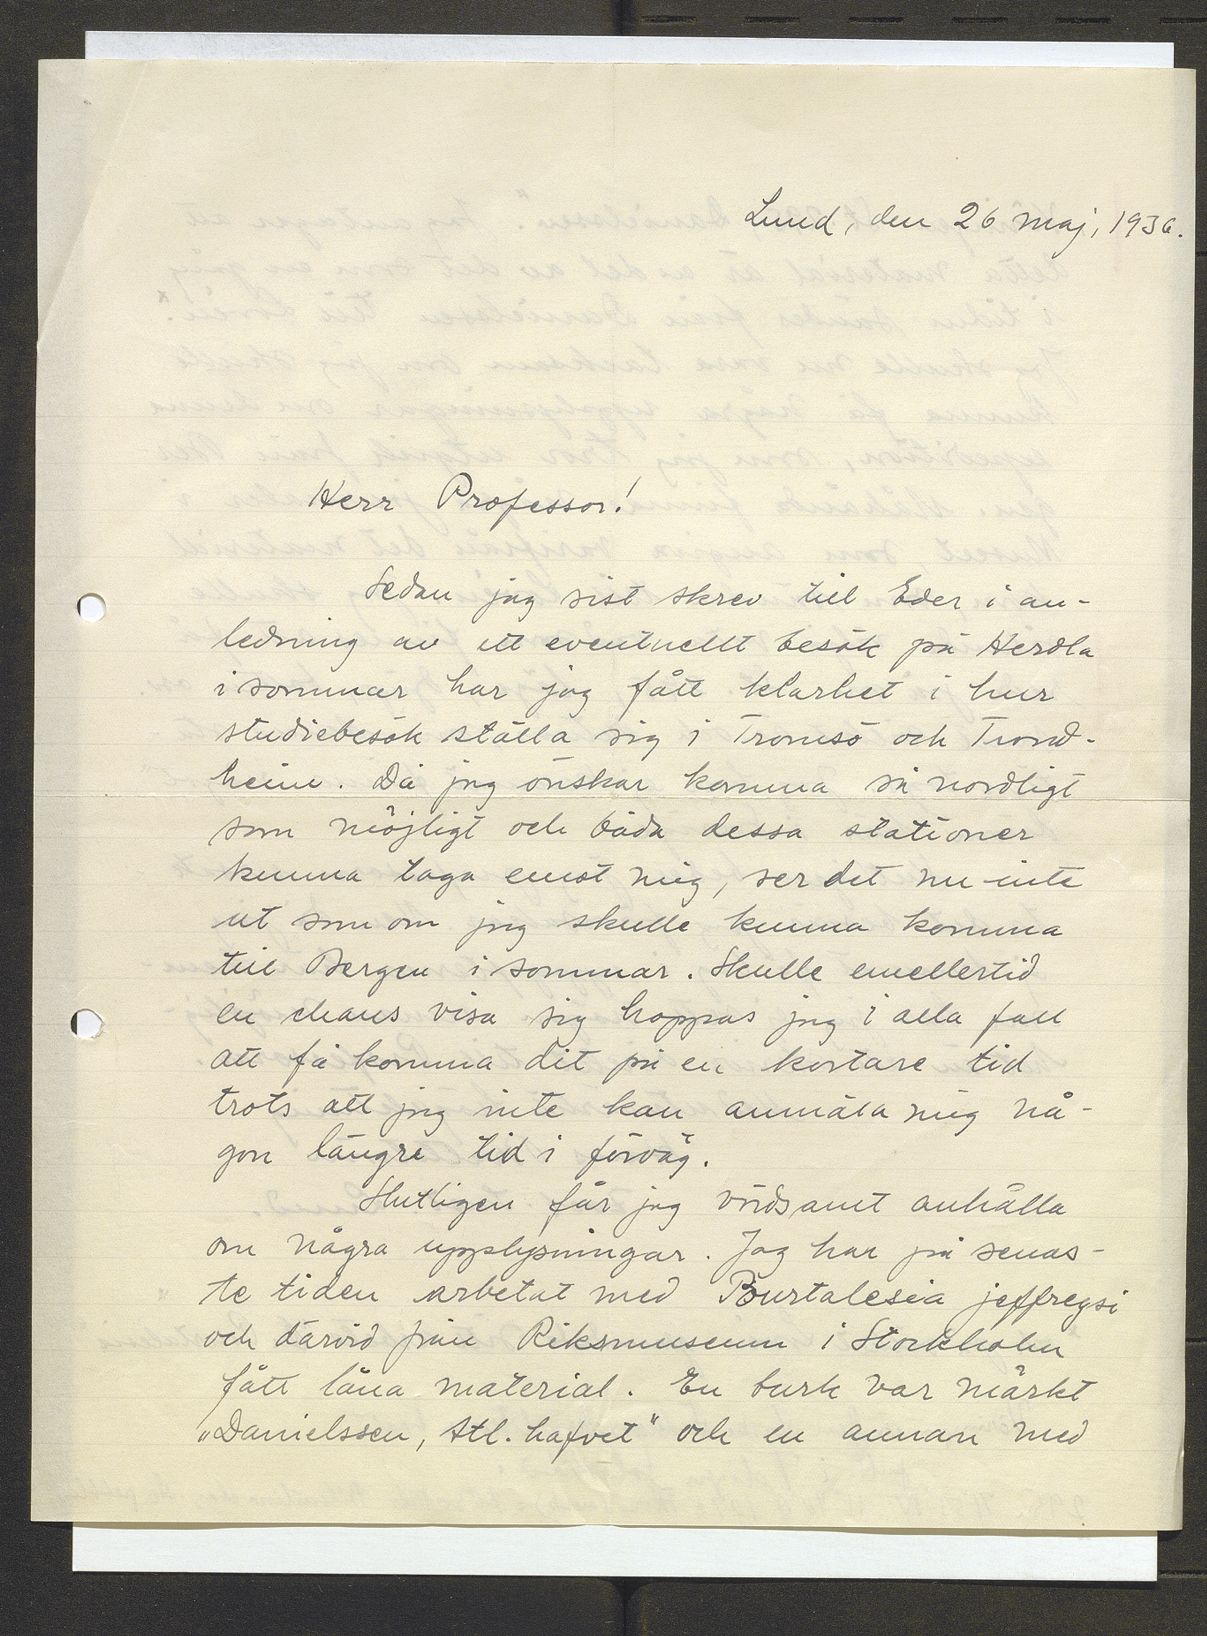 Lund, den 26 maj, 1936.
Herr Professor!
Sedan jag sist skrev till Eder i an-
ledning av ett eventuellt besök på Herdla
i sommar har jag fått klarhet i hur
studiebesök ställa sig i Tromsö och Trond-
heim. Då jag önskar komma så nordligt
som möjligt och båda dessa stationer
kunna taga emot mig, ser det nu inte
ut som om jag skulle kunna komma
till Bergen i sommar. Skulle emellertid
en chans visa sig hoppas jag i alla fall
att få komma dit på en kortare tid
trots att jag inte kan anmäla mig nå-
gon längre tid i förväg.
Slutligen får jag vördsamt anhålla
om några upplysningar. Jag har på senas-
te tiden arbetat med Pourtalesia jeffreysi
och därvid från Riksmuseum i Stockholm
fått låna material. En burk var märkt
"Danielssen, Atl. hafvet" och en annan med